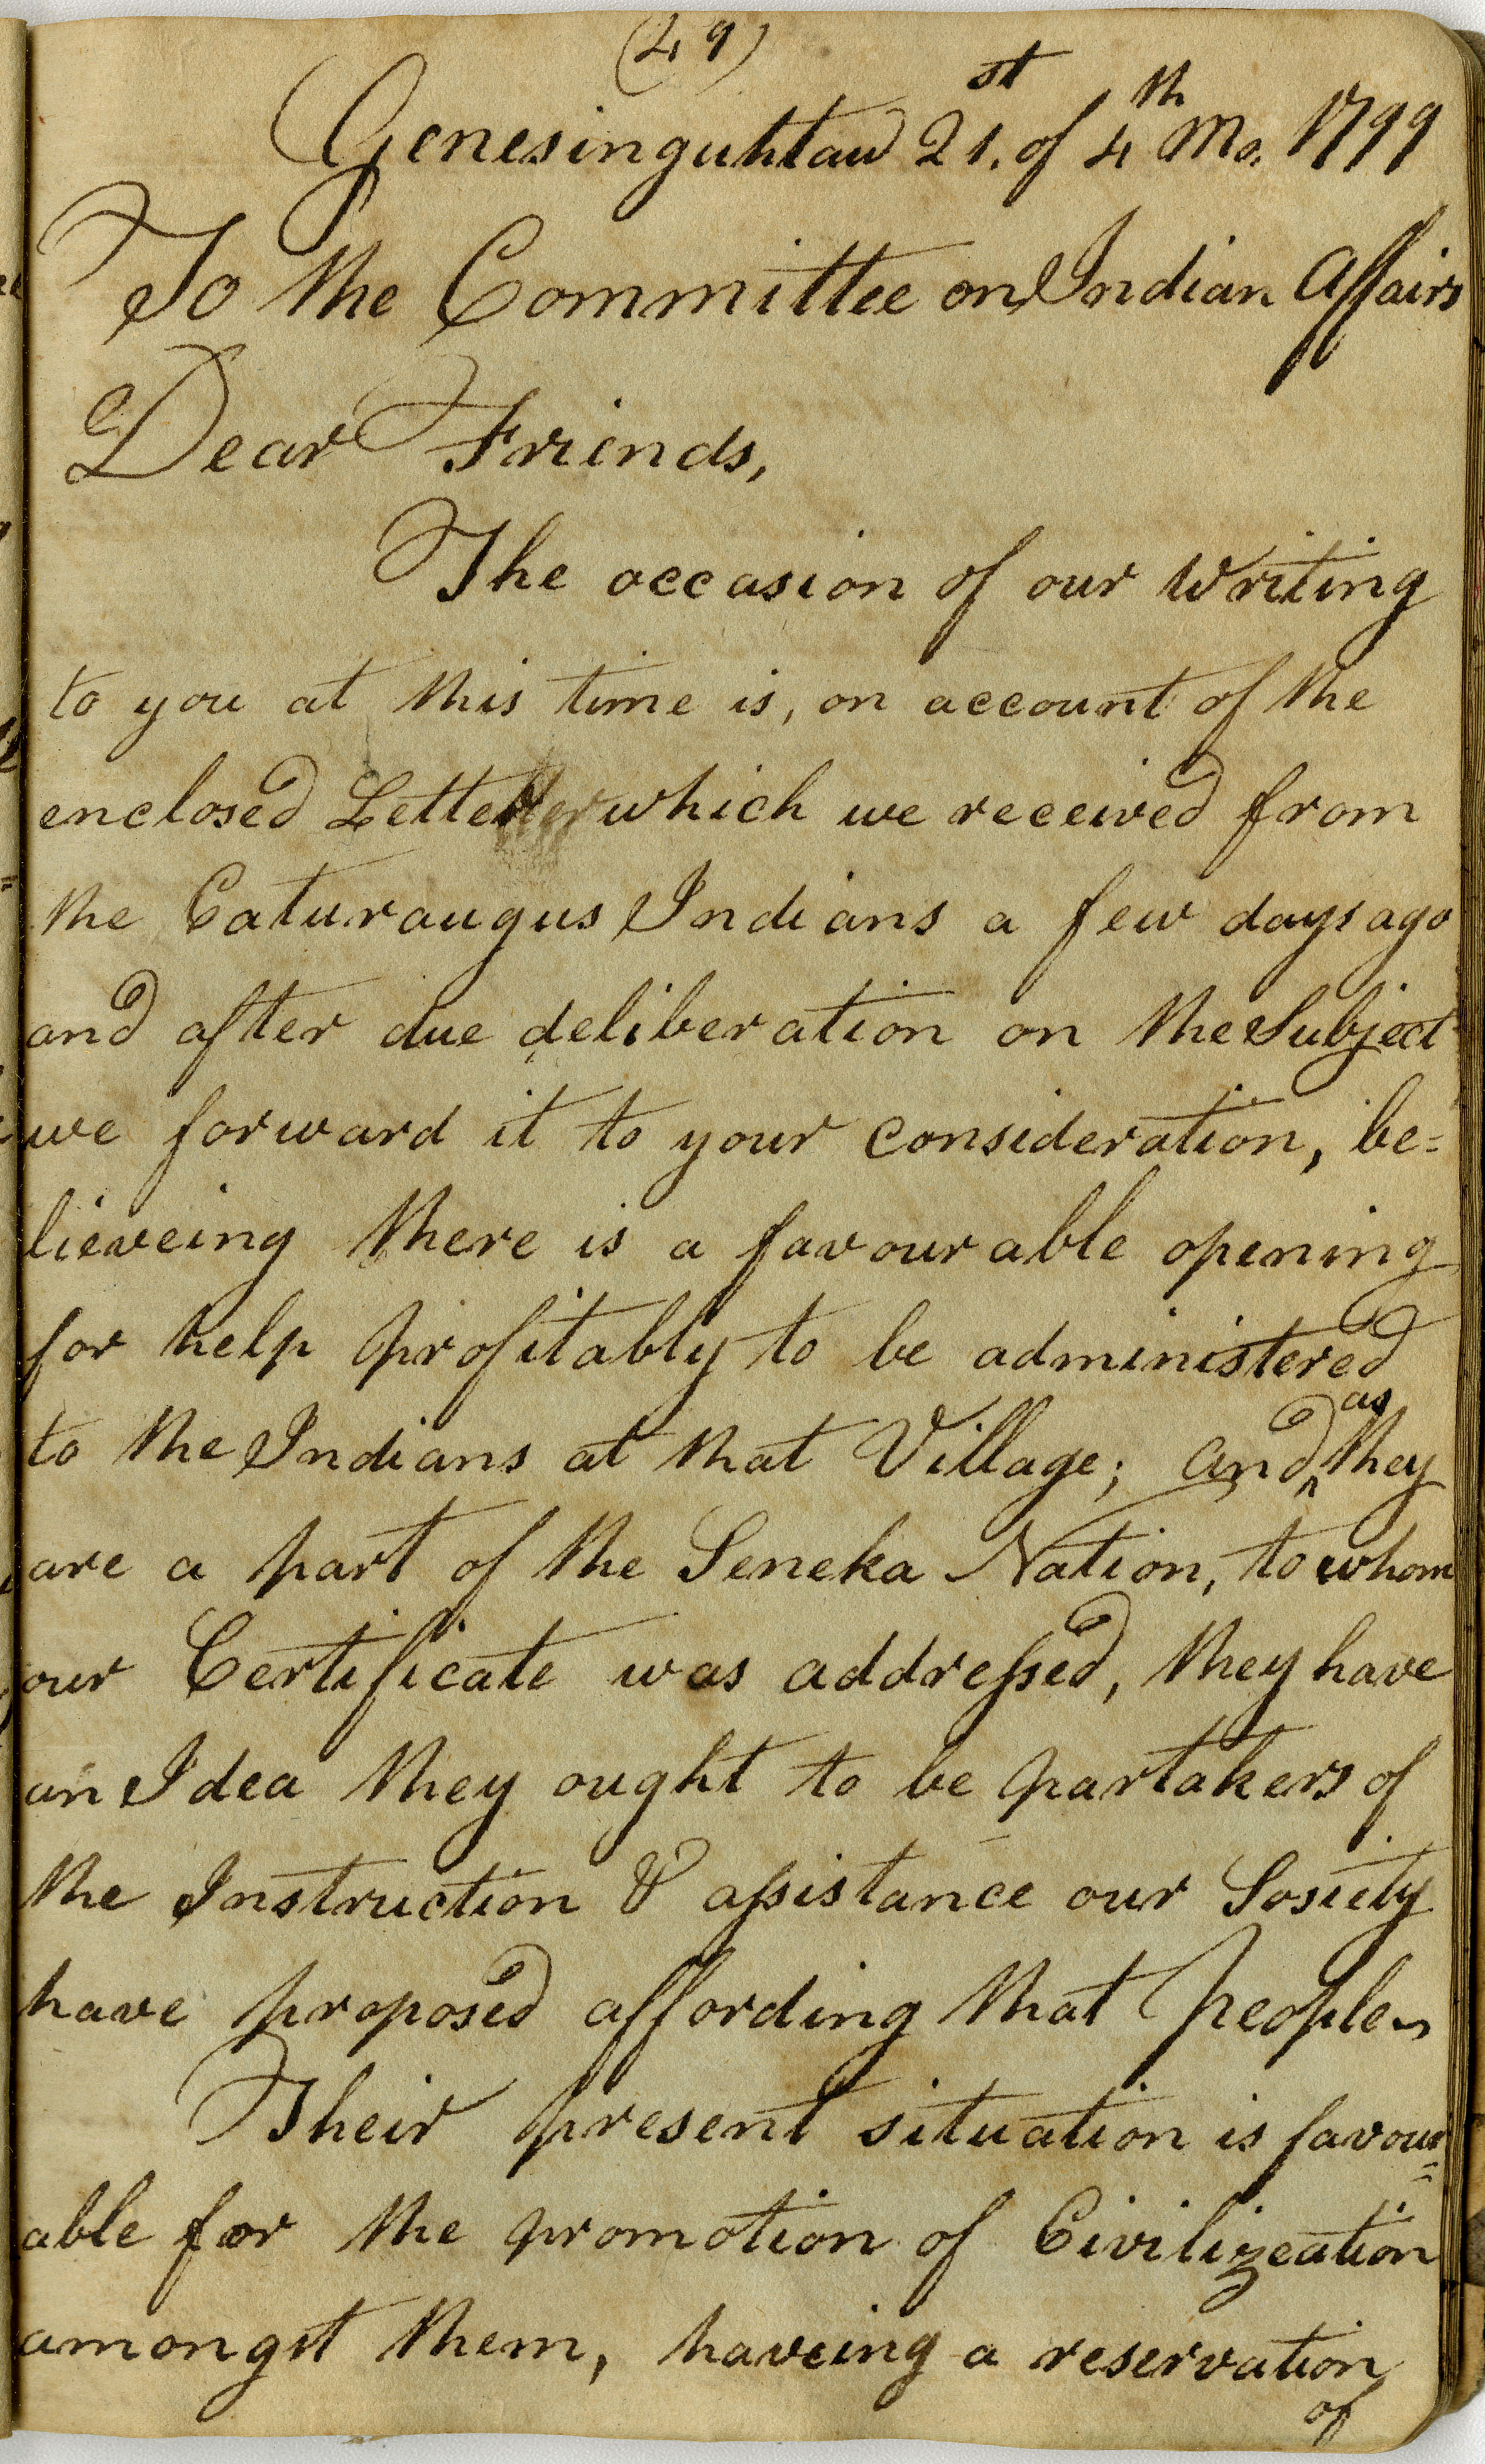 (49)
Genesinguhtaw 21.st of 4th Mo. 1799
To the Committee on Indian Affairs
Dear Friends,
The occasion of our writing
to you at this time is, on account of the
enclosed Letter which we received from
the Caturaugus Indians a few days ago
and after due deliberation on the Subject
we forward it to your consideration, be=
lieveing there is a favourable opening
for help profitably to be administered
to the Indians at that Village; and ^as they
are a part of the Seneka Nation, to whom
our Certificate was addreſsed, they have
an Idea they ought to be partakers of
the Instruction & aſsistance our Sosiety
have proposed affording that People~
Their present situation is favour=
able for the promotion of Civilizeation
amongst them, haveing a reservation
of